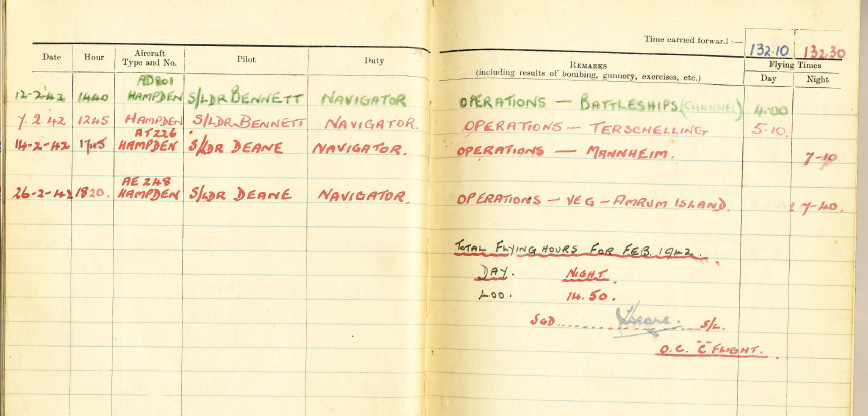 Time carried forward :— 132.10 132.30
Date Hour Aircraft Type and No. Pilot Duty REMARKS (including results of bombing, gunnery, exercises, etc.) Flying Times Day Night
AD801
12-2-42 1440 HAMPDEN S/LDR BENNETT NAVIGATOR OPERATIONS — BATTLESHIPS (CHANNEL) 4.00
7.2.42 1245 HAMPDEN S/LDR BENNETT NAVIGATOR. OPERATIONS — TERSCHELLING 5.10.
AT226
14-2-42 HAMPDEN S/LDR DEANE NAVIGATOR. OPERATIONS — MANNHEIM. 7-10
AE 248
26-2-42 1820. HAMPDEN S/LDR DEANE NAVIGATOR. OPERATIONS — VEG — AMRUM ISLAND. 7-40.
TOTAL FLYING HOURS FOR FEB. 1942.
DAY. NIGHT
4.00. 14.50.
SGD.......... Deane. S/L.
O.C. "C" FLIGHT.